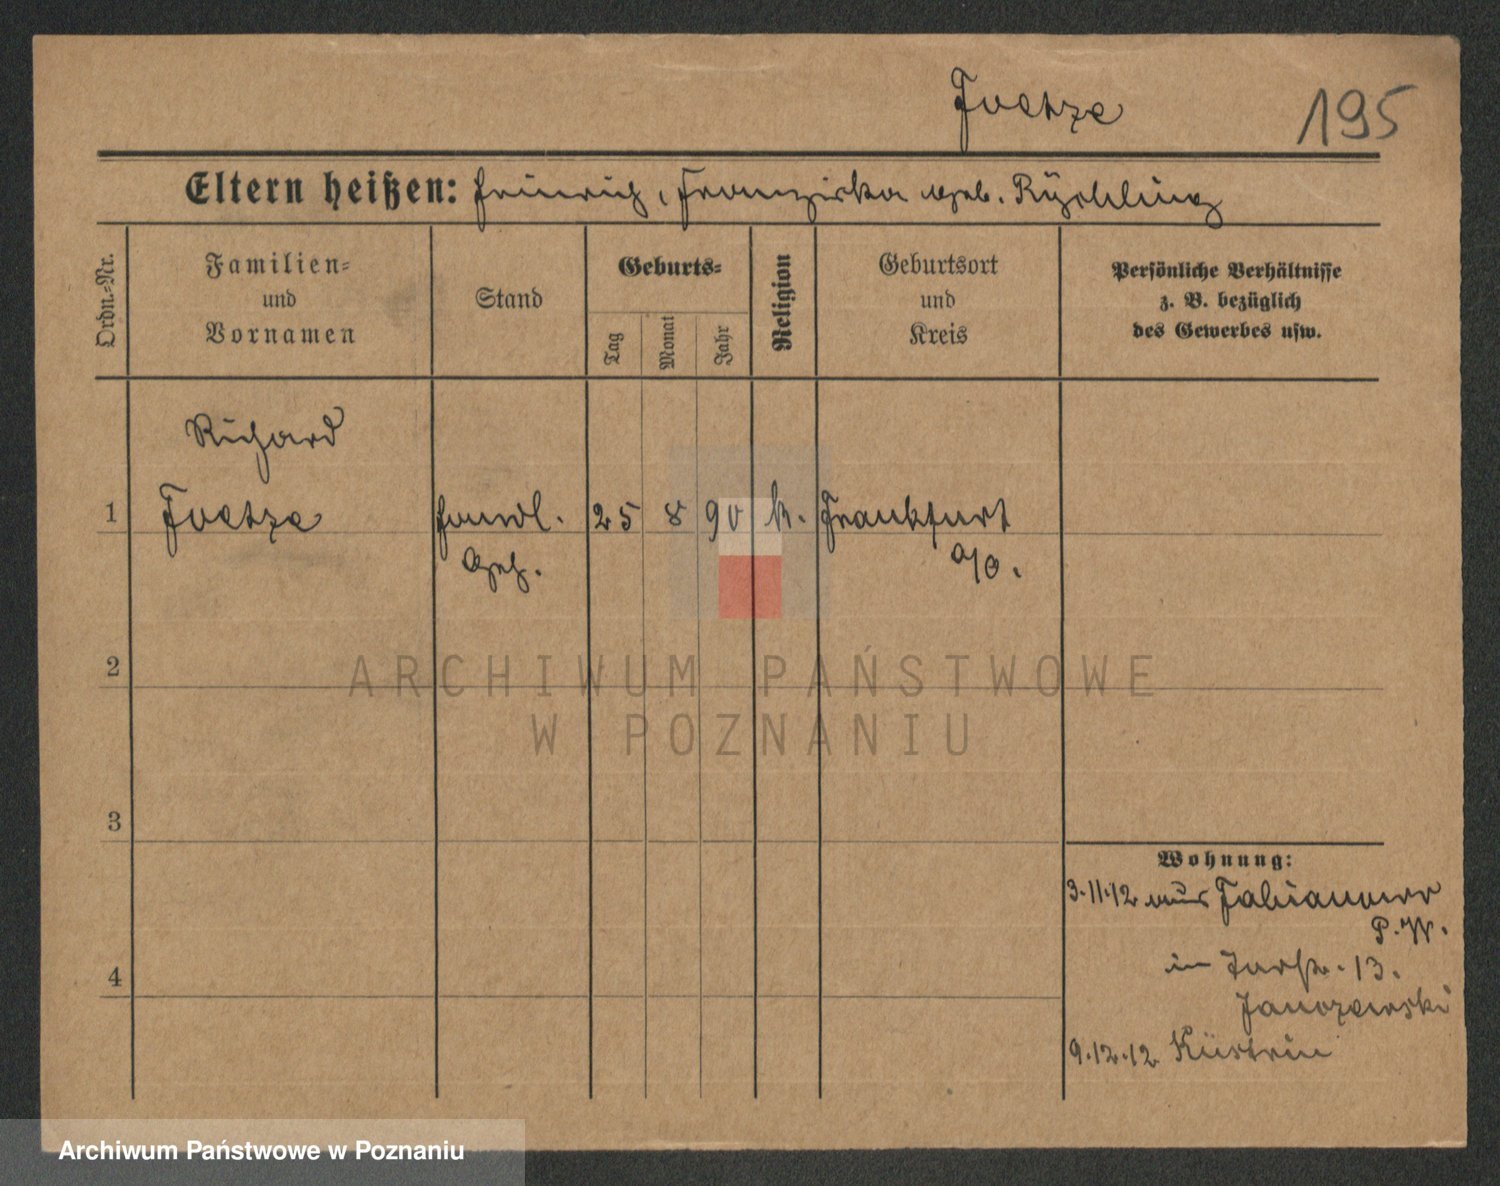 Foetze
195
Eltern heißen: Heinrich, Franziska geb. Rüchling
Ordn.-Nr.
Familien-
und
Vornamen
Stand
Geburts-
Tag
Monat
Jahr
Religion
Geburtsort
und
Kreis
Persönliche Verhältnisse
z. B. bezüglich
des Gewerbes usw.
Richard
1 Foetze Handl. 25 8 90 k. Frankfurt
Geh. a/O.
2
3
4
Wohnung:
3.11.12 aus Fabianowo
P.W.
in 13.
Janozewski
9.12.12 Küstrin
ARCHIWUM PAŃSTWOWE
W POZNANIU
Archiwum Państwowe w Poznaniu